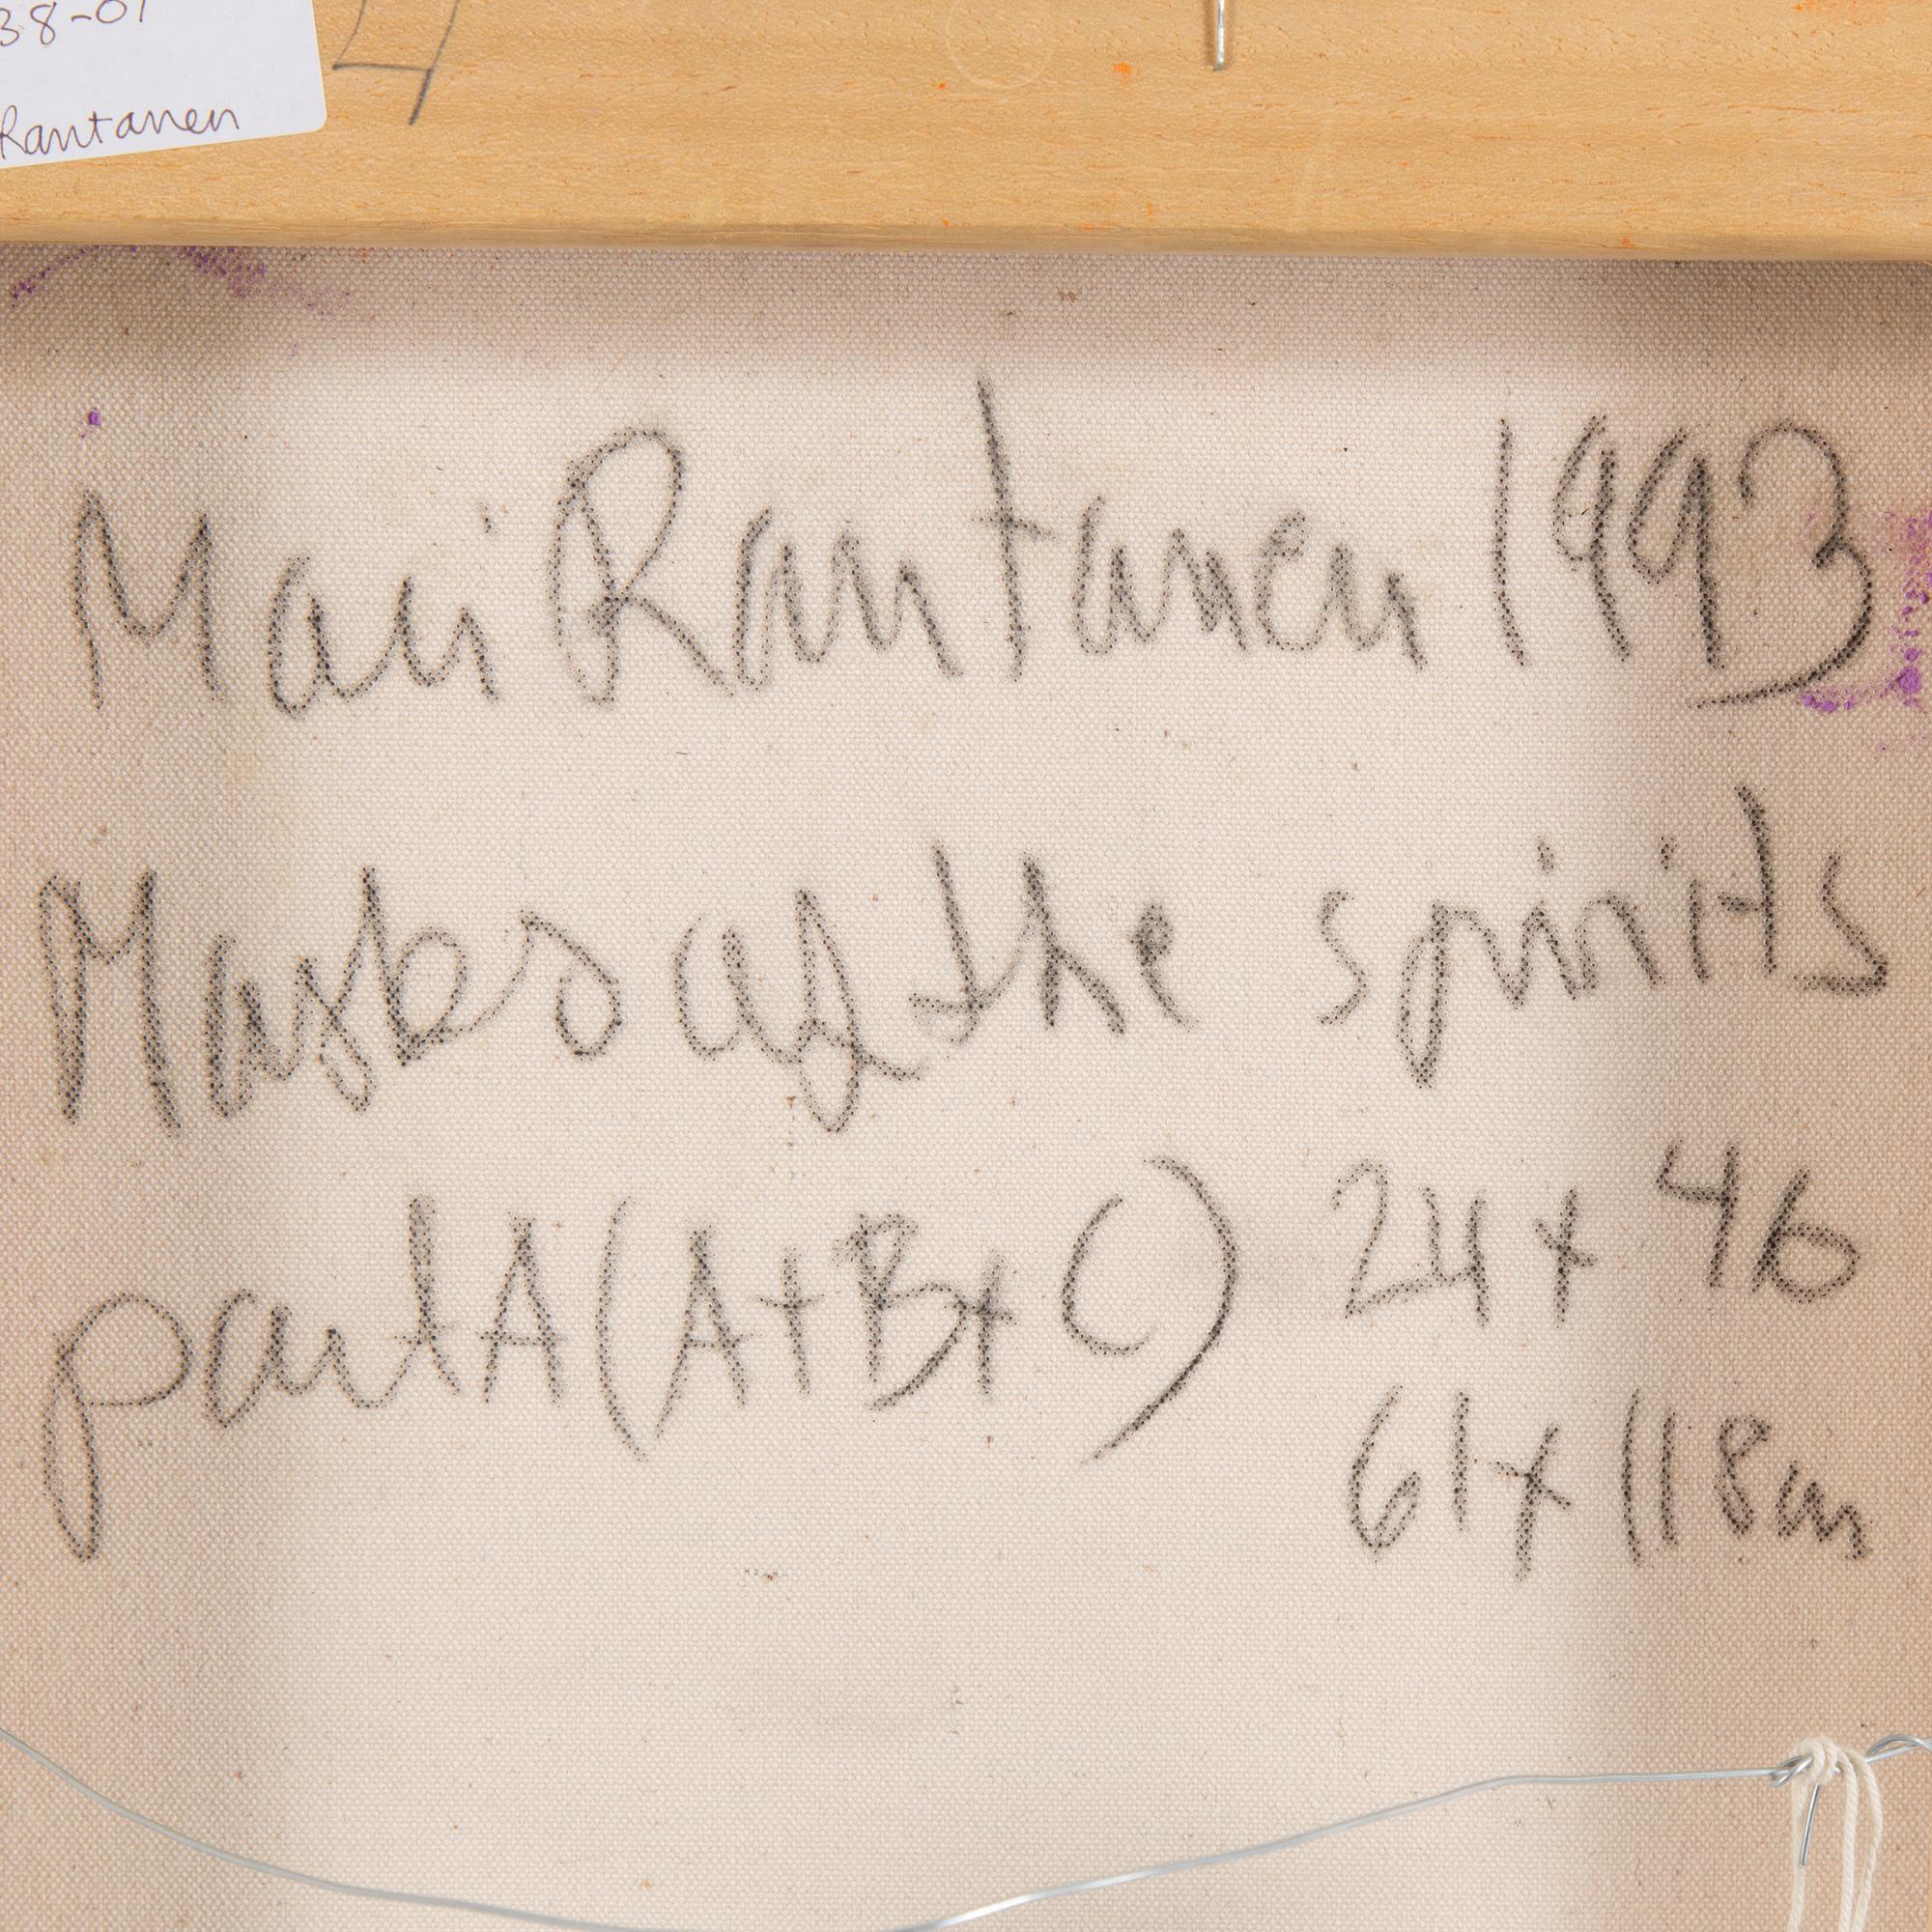 38-01
Rantanen
4
Mari Rantanen 1993
Masks of the spirits
part A (A+B+C) 24 x 46
61 x 118 cm